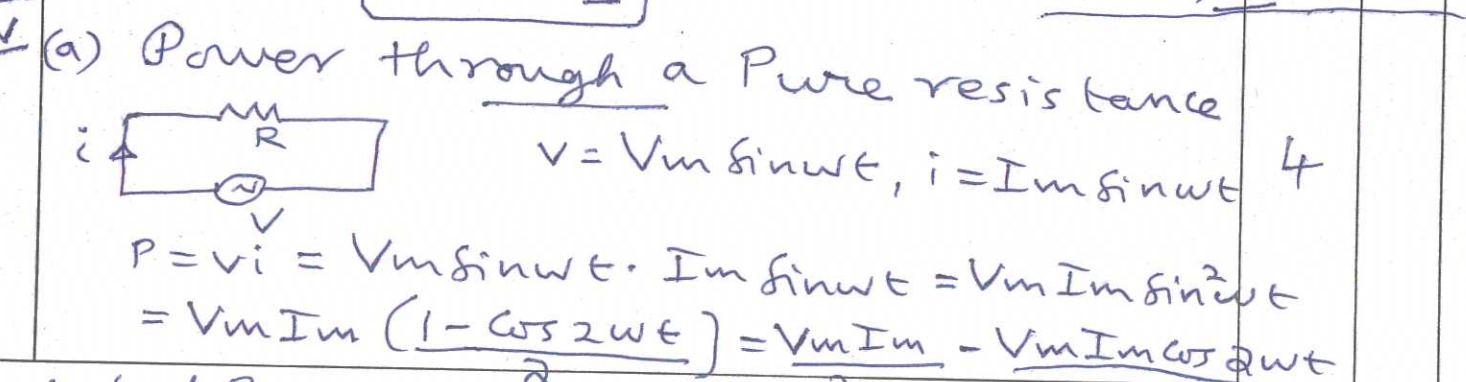 (a) Power through a Pure resistance
i R V v = Vm sinwt, i = Im sinwt 4
P = vi = Vm sinwt . Im sinwt = Vm Im sin²wt
= Vm Im (1 - cos 2wt / 2) = Vm Im - Vm Im cos 2wt